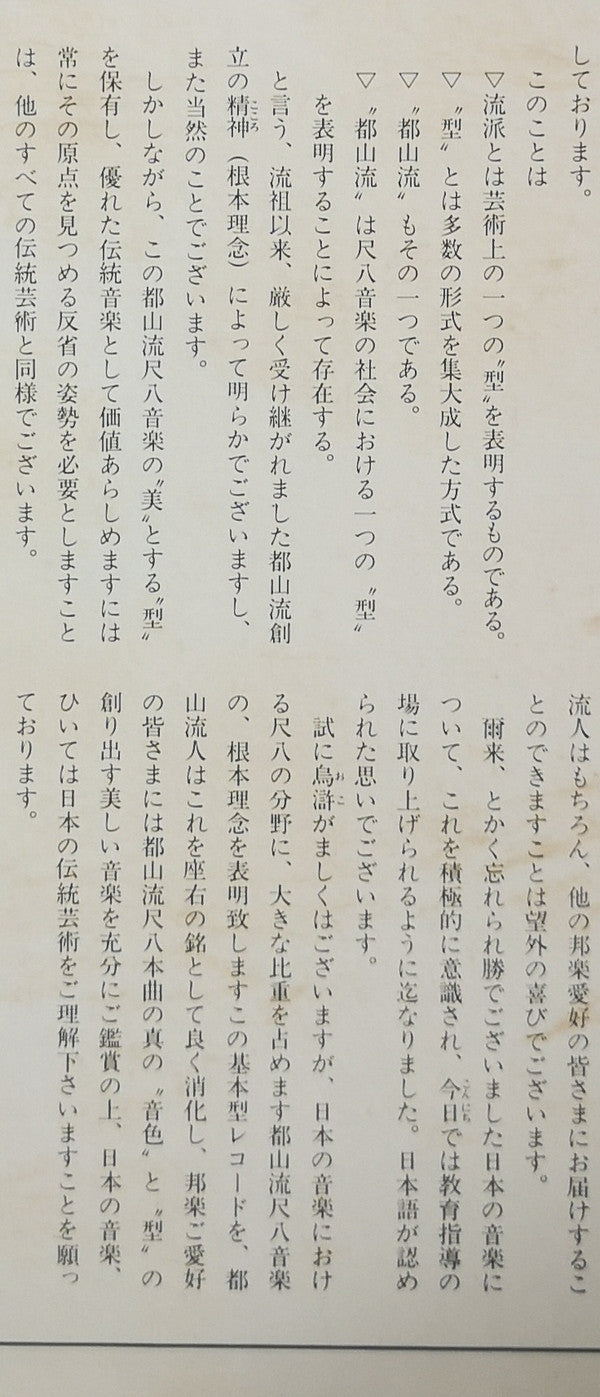 しております。
このことは
▽流派とは芸術上の一つの〝型〟を表明するものである。
▽〝型〟とは多数の形式を集大成した方式である。
▽〝都山流〟もその一つである。
▽〝都山流〟は尺八音楽の社会における一つの〝型〟
を表明することによって存在する。
と言う、流祖以来、厳しく受け継がれました都山流創
立の精神（根本理念）によって明らかでございますし、
こころ
また当然のことでございます。
しかしながら、この都山流尺八音楽の〝美〟とする〝型〟
を保有し、優れた伝統音楽として価値あらしめますには
常にその原点を見つめる反省の姿勢を必要としますこと
は、他のすべての伝統芸術と同様でございます。
流人はもちろん、他の邦楽愛好の皆さまにお届けするこ
とのできますことは望外の喜びでございます。
爾来、とかく忘れられ勝でございました日本の音楽に
ついて、これを積極的に意識され、今日では教育指導の
こんにち
場に取り上げられるように迄なりました。日本語が認め
られた思いでございます。
試に烏滸がましくはございますが、日本の音楽におけ
おこ
る尺八の分野に、大きな比重を占めます都山流尺八音楽
の、根本理念を表明致しますこの基本型レコードを、都
山流人はこれを座右の銘として良く消化し、邦楽ご愛好
の皆さまには都山流尺八本曲の真の〝音色〟と〝型〟の
創り出す美しい音楽を充分にご鑑賞の上、日本の音楽、
ひいては日本の伝統芸術をご理解下さいますことを願っ
ております。